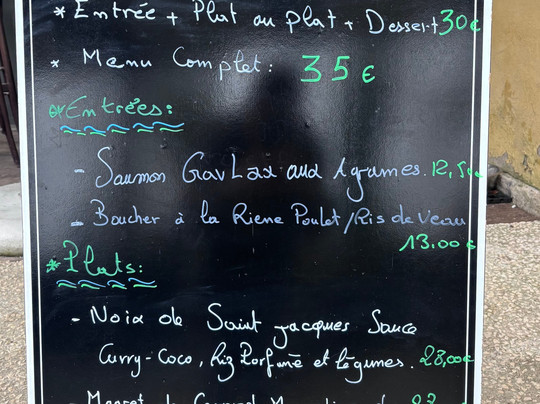 * Entrée + Plat ou plat + Dessert 30€
* Menu Complet: 35 €
* Entrées:
- Saumon Gavlax aux Agrumes. 12,50€
- Boucher à la Riene Poulet/Ris de Veau
13.00 €
* Plats:
- Noix de Saint Jacques Sauce
Curry-Coco, Riz Parfumé et légumes. 28,00€